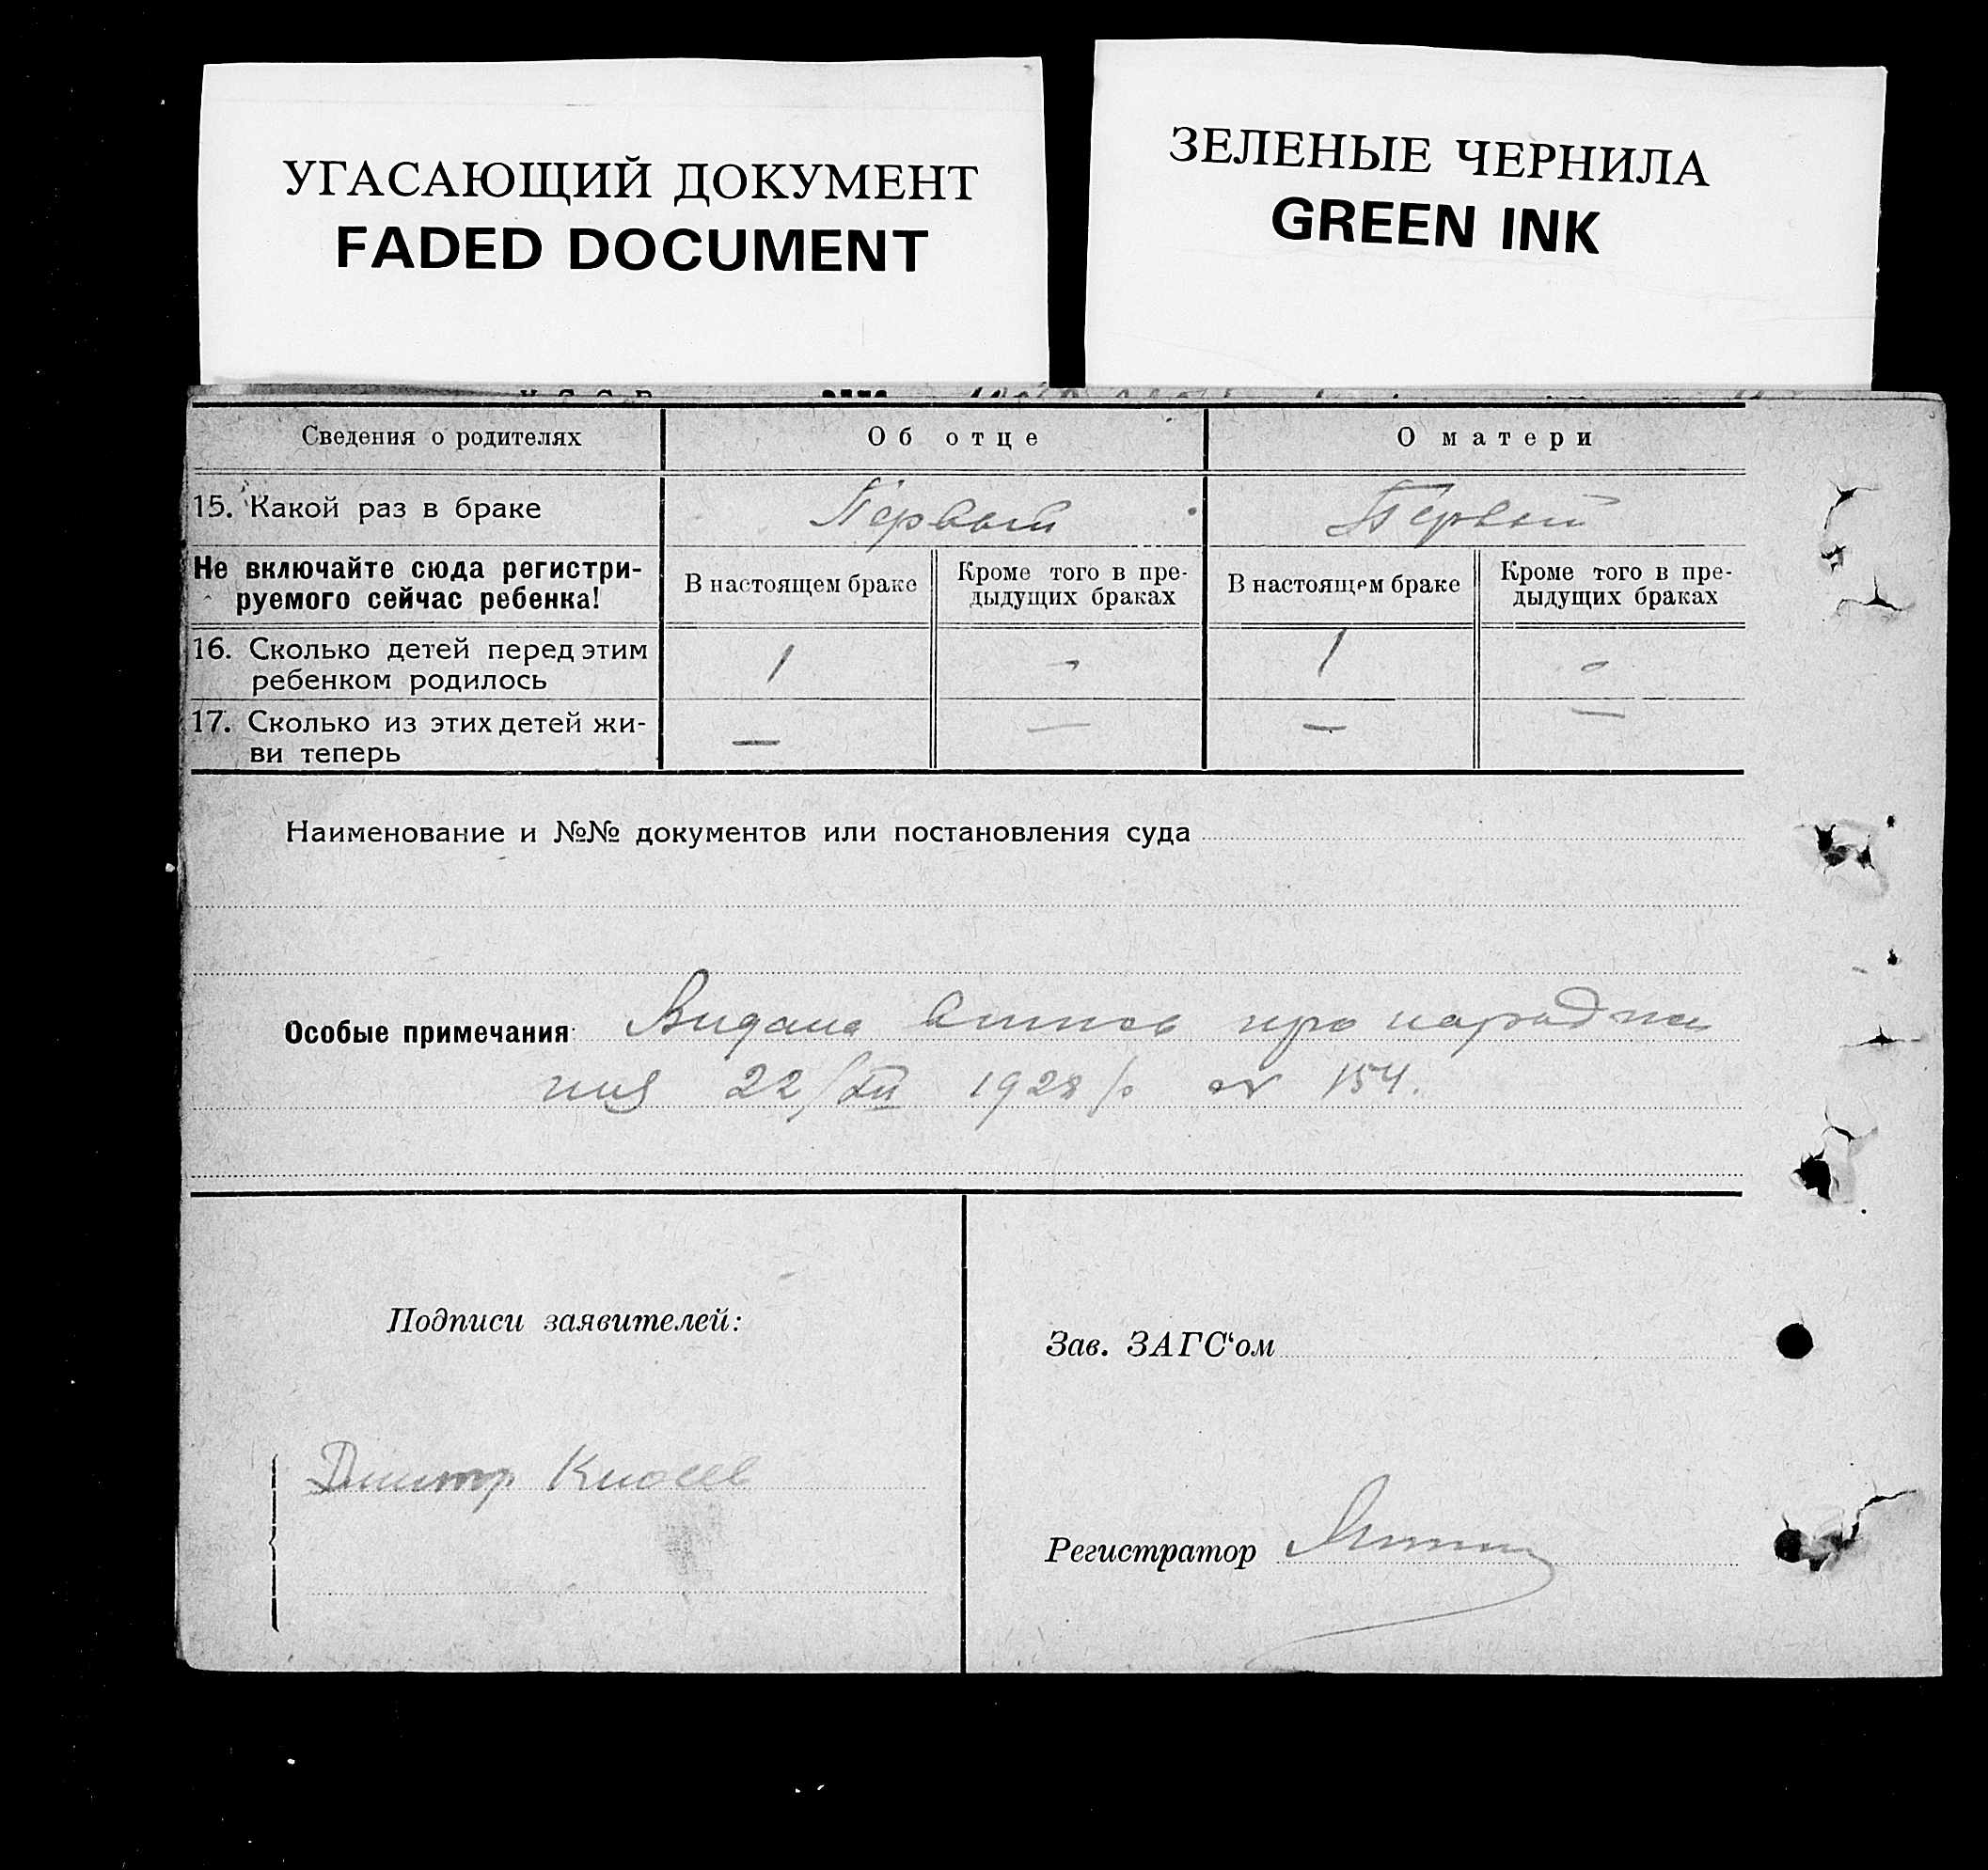 УГАСАЮЩИЙ ДОКУМЕНТ
FADED DOCUMENT
ЗЕЛЕНЫЕ ЧЕРНИЛА
GREEN INK
Сведения о родителях Об отце О матери
15. Какой раз в браке Первый Первый
Не включайте сюда регистри-
руемого сейчас ребенка!
В настоящем браке
Кроме того в пре-
дыдущих браках
В настоящем браке
Кроме того в пре-
дыдущих браках
16. Сколько детей перед этим
ребенком родилось
1 - 1 -
17. Сколько из этих детей жи-
ви теперь
— — — —
Наименование и №№ документов или постановления суда
Особые примечания: Видана про народжен
ня 22/XII 1928 р № 154.
Подписи заявителей:
Дмитр Киосев
Зав. ЗАГС'ом
Регистратор